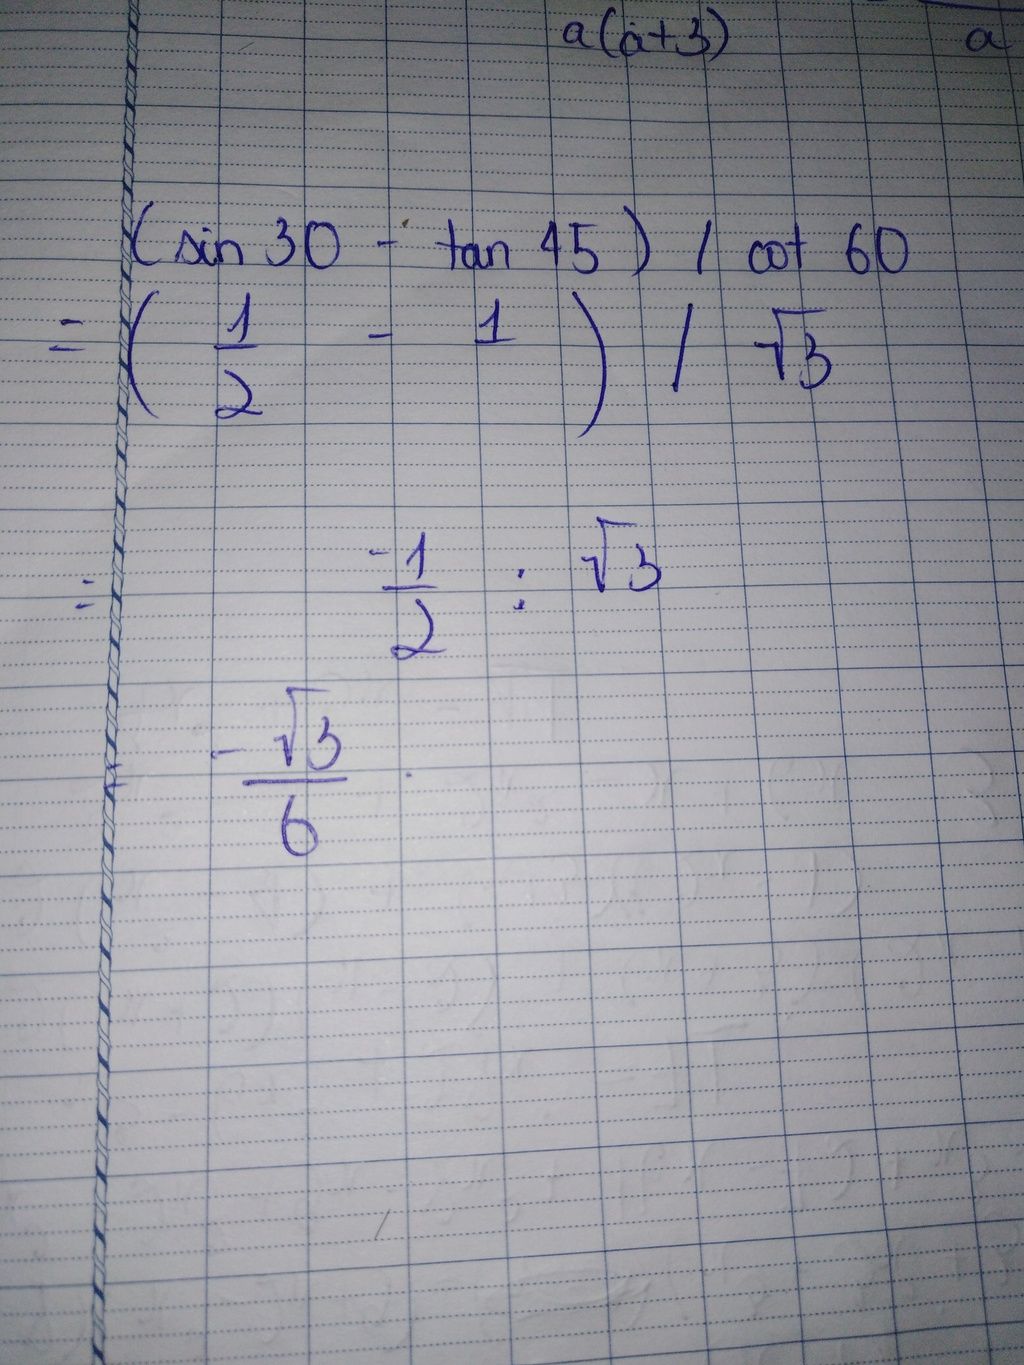 a(a+3) a
(sin 30 - tan 45) / cot 60
= (1/2 - 1) / √3
= -1/2 : √3
-√3/6